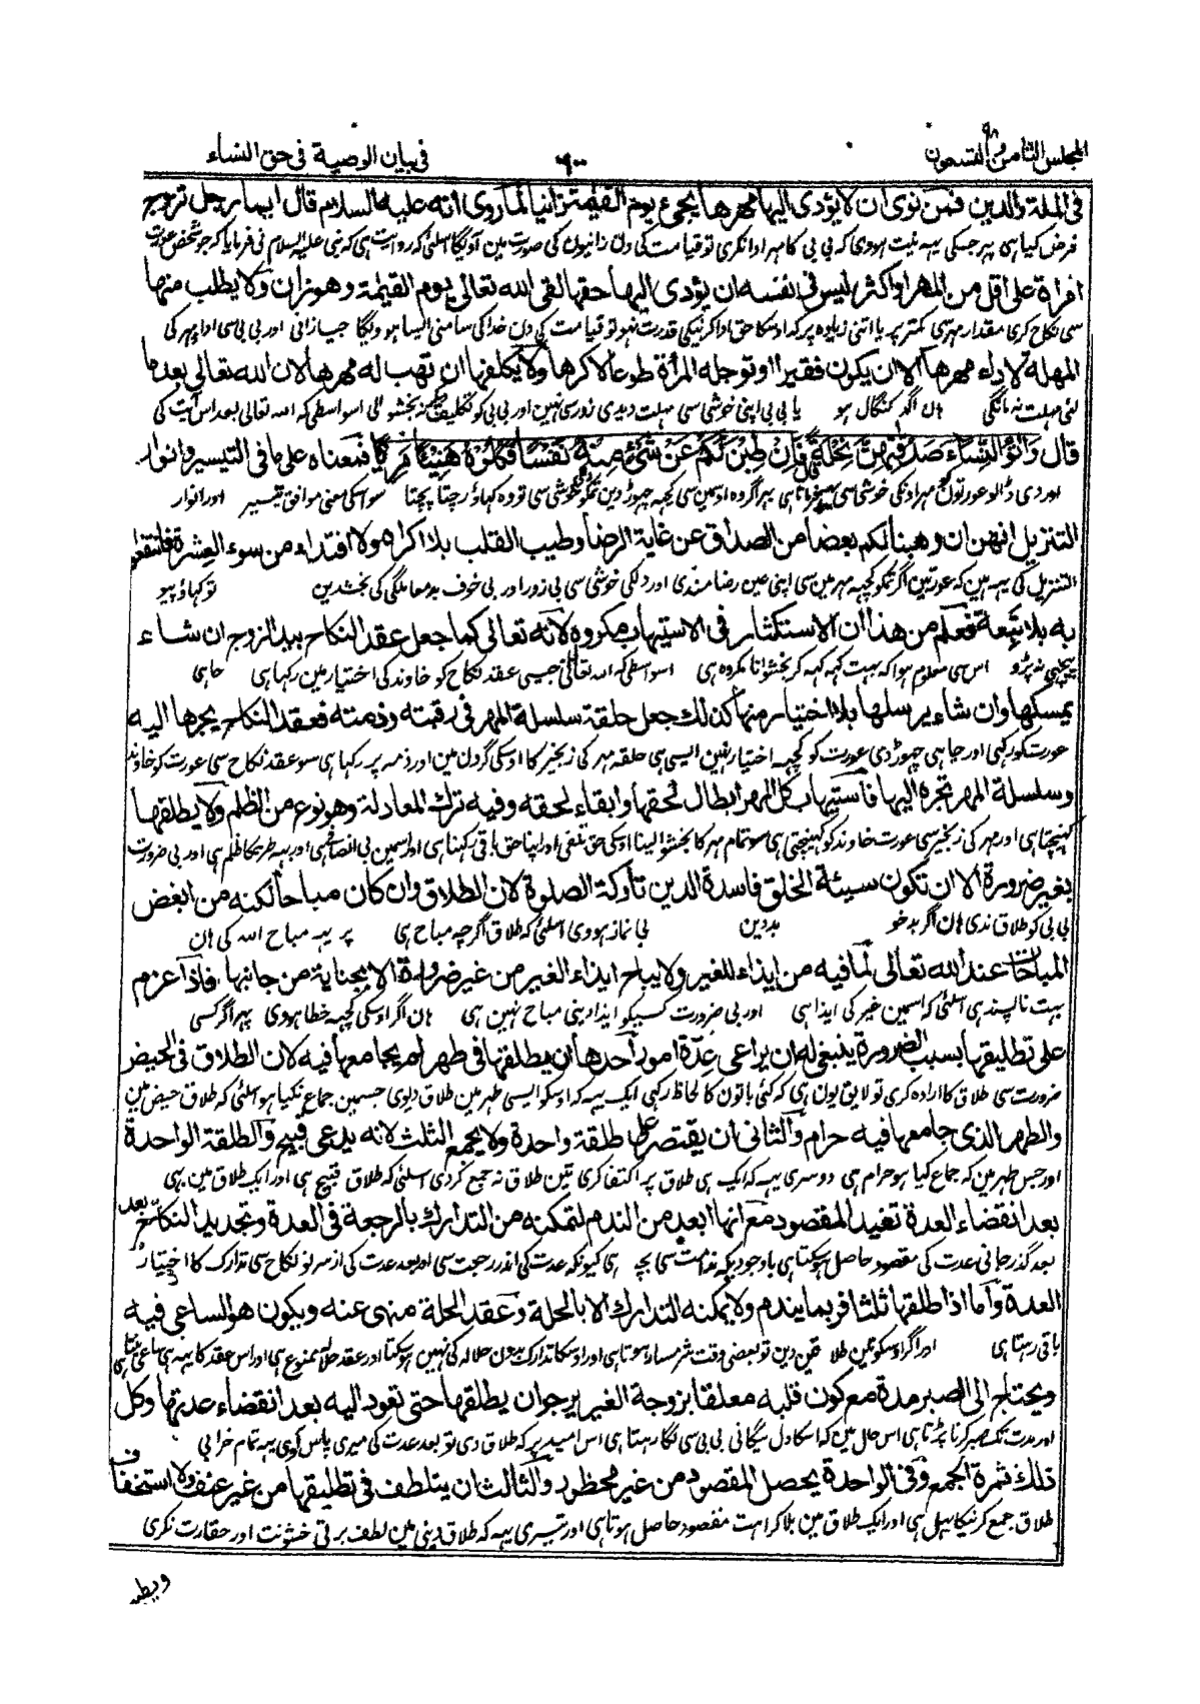 المجلس الثامن والتسعون ٩٨
٦٠٠
فى بيان الوصية فى حق النساء
فى الملة والدين فمن نوى ان لا يؤدى اليها مهرها يجئ يوم القيمة زانيا لما روى انه عليه السلام قال ايما رجل تزوج
فرض کیا ہی پہر جسکی یہہ نیت ہووی کہ بی بی کا مہر ادا نکری تو قیامت کی دن زانیوں کی صورت مین آویگا اسلئی کہ روایت ہی کہ نبی علیہ السلام نی فرمایا کہ جو شخص عورت
امرأة على اقل من المهر او اكثر ليس فى نفسه ان يؤدى اليها حقها القى الله تعالى يوم القيمة وهو زان ولا يطلب منها
سی نکاح کری مقدار مہر کی کمتر پر یا اتنی زیادہ پر کہ اوسکا حق ادا کرنیکی قدرت نہو تو قیامت کی دن خدا کی سامنی ایسا ہوویگا جیسا زانی اور بی بی سی ادا مہر کی
المهلة لاداء مهرها الا ان يكون فقيرا او توجله المرأة طوعا لا كرها ولا يكلفها ان تهب له مهرها لان الله تعالى بعد ما
لئی مہلت نہ مانگی ہان اگر کنگال ہو یا بی بی اپنی خوشی سی مہلت دیدی زور سی نہین اور بی بی کو تکلیف نہ بخشوالی اسواسطی کہ اللہ تعالی بعد اس آیت کی
قال وَاٰتُوا النِّسَاءَ صَدُقٰتِهِنَّ نِحْلَةً فَاِنْ طِبْنَ لَكُمْ عَنْ شَيْءٍ مِنْهُ نَفْسًا فَكُلُوْهُ هَنِيْئًا مَرِيْئًا فمعناه على ما فى التيسير وانوار
اور دی ڈالو عورتون کو مہر اونکی خوشی سی پہر فرماتا ہی پہر اگر وہ اوسمین سی کچہہ چہوڑ دین تمکو خوشی سی تو وہ کہاؤ رچتا پچتا سو اسکی معنی موافق تیسیر اور انوار
التنزيل انهن ان وهبنا لكم بعضا من الصداق عن غاية الرضا وطيب القلب بلا اكراه ولا افتداء من سوء العشرة فانتفعوا
التنزیل کی یہہ ہین کہ عورتین اگر تمکو کچہہ مہر مین سی اپنی عین رضامندی اور دلکی خوشی سی بی زور اور بی خوف بدمعاملگی کی بخشدین تو کہاؤ پیو
به بلا تبعة فعلم من هذا ان الاستكثار فى الاستيهاب مكروه لانه تعالى كما جعل عقد النكاح بيد الزوج ان شاء
پیچہی نہ پڑو اس سی معلوم ہوا کہ بہت کہہ کہہ کر بخشوانا مکروہ ہی اسواسطی کہ اللہ تعالی نی جیسی عقد نکاح کو خاوند کی اختیار مین رکہا ہی چاہی
يمسكها وان شاء يرسلها بلا اختيار منها كذلك جعل حلقة سلسلة المهر فى رقبته وذمته فعقد النكاح يجرها اليه
عورت کو رکہی اور چاہی چہوڑ دی عورت کو کچہہ اختیار نہین ایسی ہی حلقہ مہر کی زنجیر کا اوسکی گردن مین اور ذمہ پر رکہا ہی سو عقد نکاح سی عورت کو خاوند
وسلسلة المهر تجره اليها فاستيهاب كل المهر ابطال لحقها وابقاء لحقه وفيه ترك المعادلة وهو نوع من الظلم ولا يطلقها
کہینچتا ہی اور مہر کی زنجیر سی عورت خاوند کو کہینچتی ہی سو تمام مہر کا بخشوا لینا اوسکی حق تلفی اور اپنا حق باقی رکہنا ہی اور اسمین بی انصافی ہی اور یہہ طرح کا ظلم ہی اور بی ضرورت
بغير ضرورة الا ان تكون سيئة الخلق فاسدة الدين تاركة الصلوة لان الطلاق وان كان مباحا لكنه من ابغض
بی بی کو طلاق ندی ہان اگر بدخو بددین بی نماز ہووی اسلئی کہ طلاق اگرچہ مباح ہی پر یہہ مباح اللہ کی ہان
المباحات عند الله تعالى لما فيه من ايذاء للغير ولا يباح ايذاء الغير من غير ضرورة الا بجناية من جانبها فاذا عزم
بہت ناپسند ہی اسلئی کہ اسمین غیر کی ایذا ہی اور بی ضرورت کسیکو ایذا دینی مباح نہین ہی ہان اگر اوسکی کچہہ خطا ہووی پہر اگر کسی
على تطليقها بسبب الضرورة ينبغى له ان يراعى عدة امور احدها ان يطلقها فى طهر لم يجامعها فيه لان الطلاق فى الحيض
ضرورت سی طلاق کا ارادہ کری تو لایق یون ہی کہ کئی باتون کا لحاظ رکہی ایک یہہ کہ اوسکو ایسی طہر مین طلاق دیوی جسمین جماع نکیا ہو اسلئی کہ طلاق حیض مین
والطهر الذى جامعها فيه حرام والثانى ان يقتصر على طلقة واحدة ولا يجمع الثلث لانه بدعى قبيح والطلقة الواحدة
اور جس طہر مین کہ جماع کیا ہو حرام ہی دوسری یہہ کہ ایک ہی طلاق پر اکتفا کری تین طلاق نہ جمع کردی اسلئی کہ طلاق قبیح ہی اور ایک طلاق مین بہی
بعد انقضاء العدة تفيد المقصود مع انها ابعد من الندم لتمكنه من التدارك بالرجعة فى العدة وتجديد النكاح بعد
بعد گذر جانی عدت کی مقصود حاصل ہو سکتا ہی باوجودیکہ ندامت سی بچی ہی کیونکہ عدت کی اندر رجعت سی اور بعد عدت کی از سر نو نکاح سی تدارک کا اختیار
العدة واما اذا طلقها ثلثا فربما يندم ولا يمكنه التدارك الا بالحلة وعقد الحلة منهى عنه ويكون هو الساعى فيه
باقی رہتا ہی اور اگر اوسکو تین طلاقین دین تو بعضی وقت شرمسار ہوتا ہی اور اوسکا تدارک بدون حلالہ کی نہین ہو سکتا اور عقد حلالہ ممنوع ہی اور اس عقد کا یہہ ہی ساعی بنتا ہی
ويحتاج الى الصبر مدة مع كون قلبه معلقا بزوجة الغير يرجو ان يطلقها حتى تعود اليه بعد انقضاء عدتها وكل
اور مدت تک صبر کرنا پڑتا ہی اس حال مین کہ اسکا دل بیگانی بی بی سی لگا رہتا ہی اس امید پر کہ طلاق دی تو بعد عدت کی میری پاس آوی یہہ تمام خرابی
ذلك ثمرة الجمع وفى الواحدة يحصل المقصود من غير محظور والثالث ان يتلطف فى تطليقها من غير عنف ولا استخفاف
طلاق جمع کرنیکا پہل ہی اور ایک طلاق مین بلا کراہت مقصود حاصل ہوتا ہی اور تیسری یہہ کہ طلاق دینی مین لطف برتی خشونت اور حقارت نکری
ويطيب